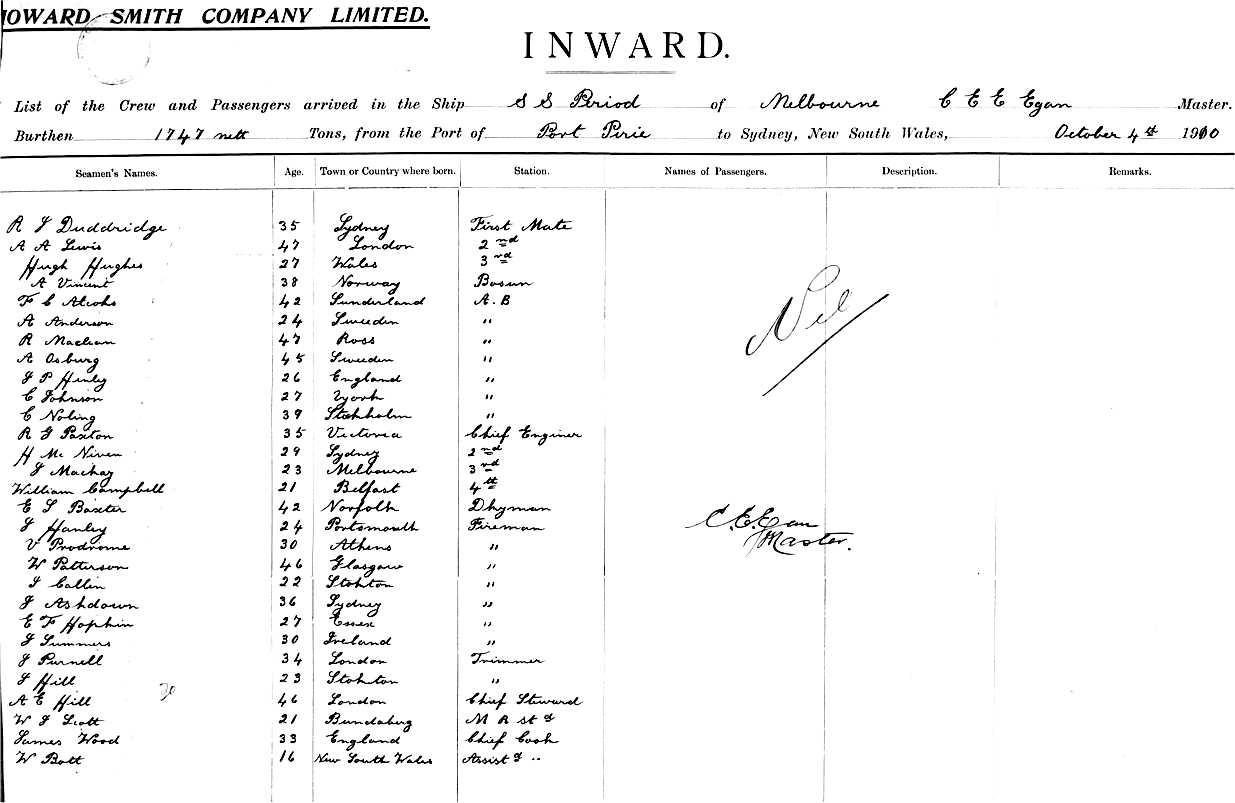 HOWARD SMITH COMPANY LIMITED.
INWARD.
List of the Crew and Passengers arrived in the Ship S S Period of Melbourne C E E Egan Master.
Burthen 1747 nett Tons, from the Port of Port Pirie to Sydney, New South Wales, October 4th 1910
Seamen's Names. Age. Town or Country where born. Station. Names of Passengers. Description. Remarks.
R J Duddridge 35 Sydney First Mate
A A Lewis 47 London 2nd
Hugh Hughes 27 Wales 3rd
A Vincent 38 Norway Bosun
F C 42 Sunderland A.B
A Anderson 24 Sweeden "
R Maclean 47 Ross "
A Osburg 45 Sweeden "
J P Henly 26 England "
C Johnson 27 York "
C Noling 39 Stockholm "
R G Paxton 35 Victoria Chief Enginer
H Mc Niven 29 Sydney 2nd
J Mackay 23 Melbourne 3rd
William Campbell 21 Belfast 4th
E S Baxter 42 Norfolk Dkyman
J Hanley 24 Portsmouth Fireman
V Prodrome 30 Athens "
W Patterson 46 Glasgow "
J Callin 22 Stokton "
J Ashdown 36 Sydney "
E F Hopkin 27 Essex "
J Summers 30 Ireland "
J Purnell 34 London Trimmer
J Hill 23 Stokton "
A E Hill 46 London Chief Steward
W J Scott 21 Bundaberg M R std
James Wood 33 England Chief Cook
W Bott 16 New South Wales Assist "
Nil
C.E.Egan
Master.